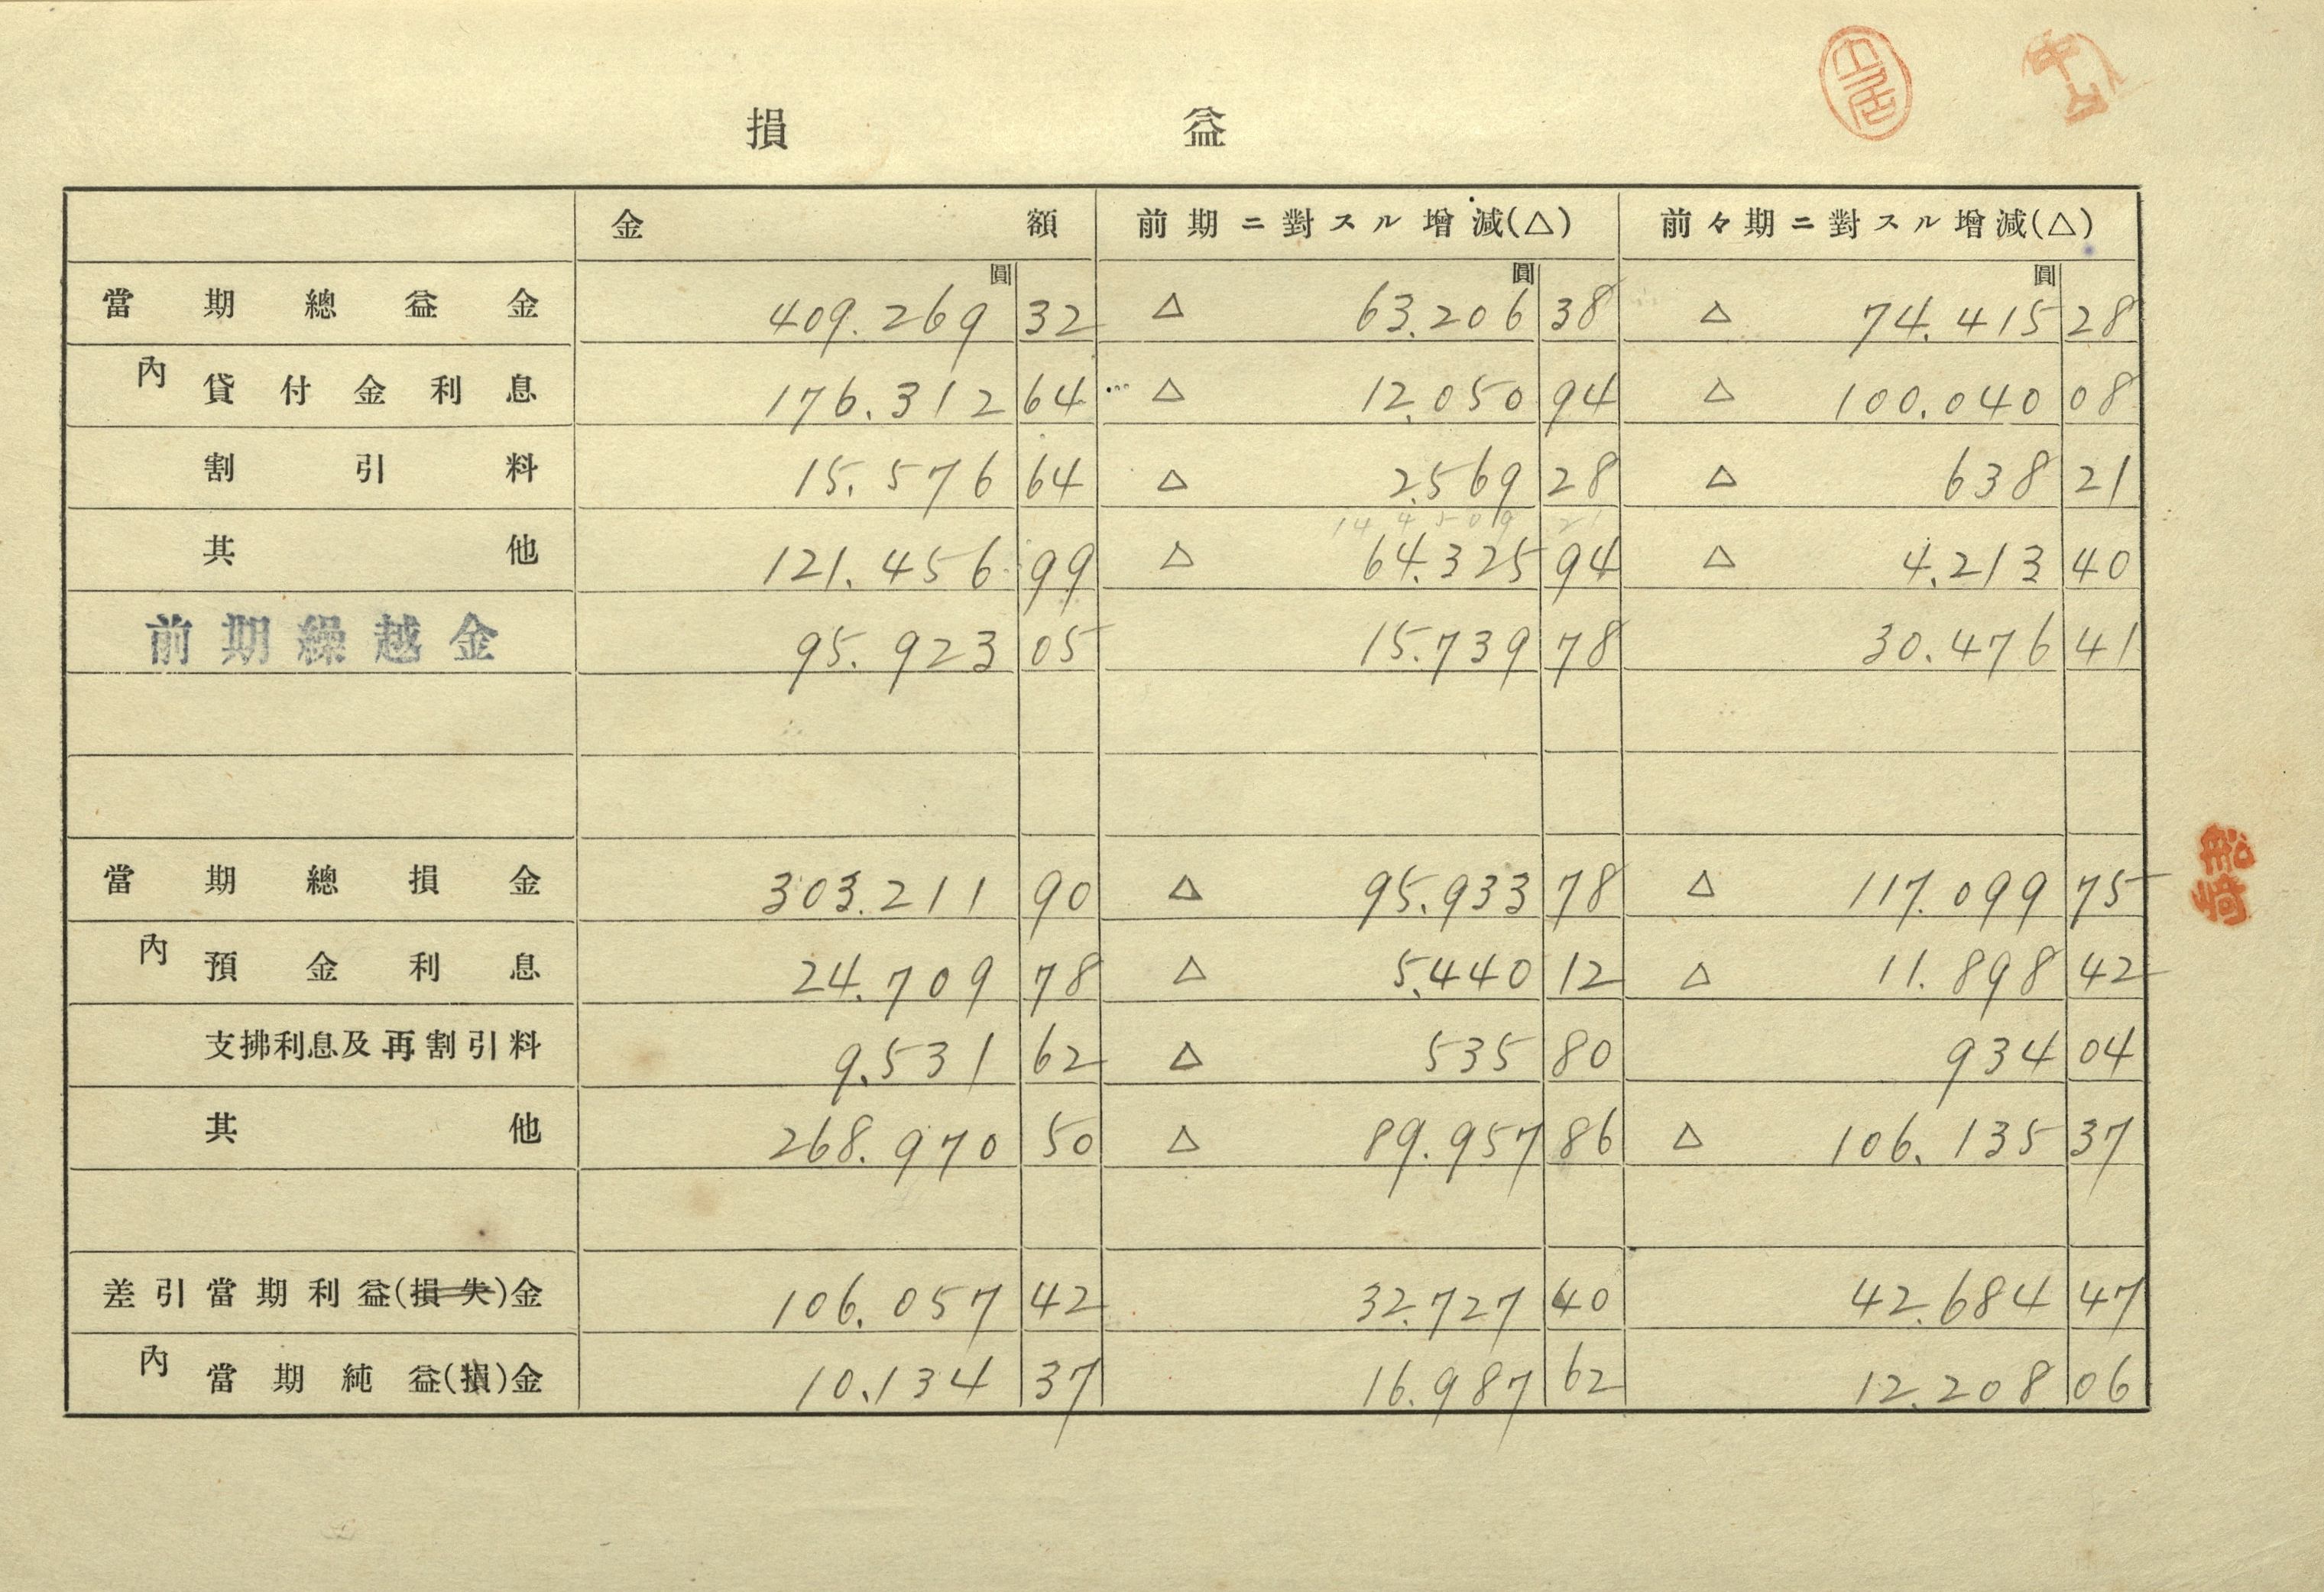 損 益
金 額 前期ニ對スル增減(△) 前々期ニ對スル增減(△)
當期總益金 圓 409.269 32 △ 圓 63.206 38 △ 圓 74.415 28
內 貸付金利息 176.312 64 △ 12.050 94 △ 100.040 08
割引料 15.576 64 △ 2.569 28 △ 638 21
其他 121.456 99 △ 64.325 94 △ 4.213 40
前期繰越金 95.923 05 15.739 78 30.476 41
當期總損金 303.211 90 △ 95.933 78 △ 117.099 75
內 預金利息 24.709 78 △ 5.440 12 △ 11.898 42
支拂利息及再割引料 9.531 62 △ 535 80 934 04
其他 268.970 50 △ 89.957 86 △ 106.135 37
差引當期利益(損失)金 106.057 42 32.727 40 42.684 47
內 當期純益(損)金 10.134 37 16.987 62 12.208 06